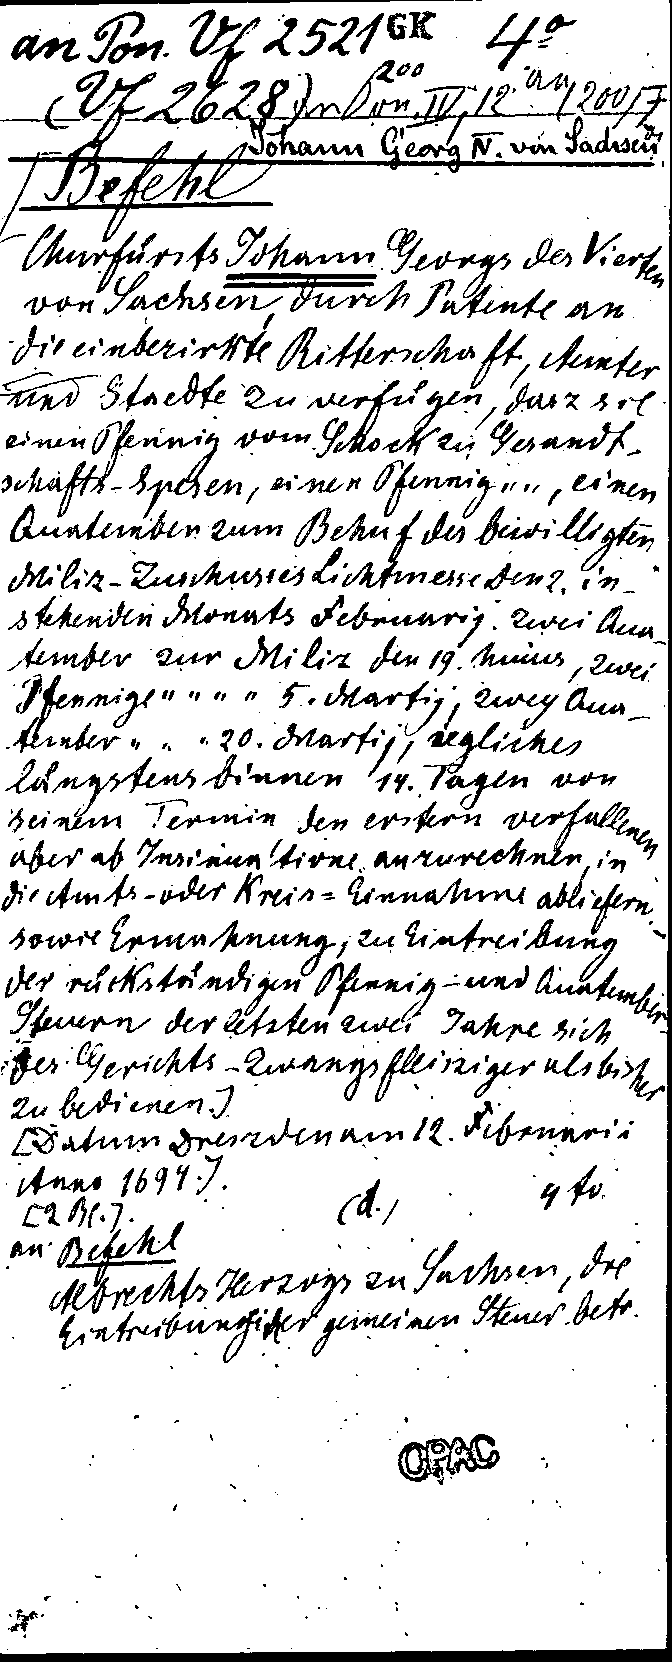 an Pon. Vf 2521 GK 4°
(Vf 2628) an Pon. IV, 12. 200
Johann Georg IV. von Sachsen
[Befehl
Churfürsts Johann Georgs des Vierten
von Sachsen, durch Patente an
die einbezirkte Ritterschaft, Aemter
und Staedte zu verfügen, dasz sie
einen Pfennig vom Schock zu Gesandt-
schafts-Spesen, einen Pfennig " ", einen
Quatember zum Behuf des bewilligten
Miliz-Zuschusses Lichtmesse den 2. in-
stehenden Monats Februarij. zwei Qua-
tember zur Miliz den 19. huius, zwei
Pfennige " " " " 5. Martij, zwey Qua-
tember " " " 20. Martij, iegliches
längstens binnen 14. Tagen von
seinem Termin den erstern verfallenen
aber ab Insinuatione anzurechnen, in
die Amts- oder Kreis=Einnahme abliefern.-
sowie Ermahnung, zu Eintreibung
der rückständigen Pfennig- und Quatember-
Steuern der letzten zwei Jahre sich
des Gerichts-Zwangs fleisziger als bisher
zu bedienen.]
[Datum Dreszden am 12. Februarii
Anno 1694.].
[2 Bl.]. (d.) 4to.
an: Befehl
Albrechts Herzogs zu Sachsen, die
Eintreibung der gemeinen Steuer betr.
OPAC